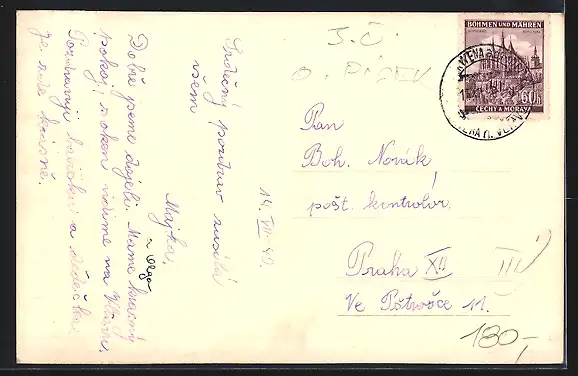 Dobře jsme dojeli. Máme krásný
pokoj, z oken vidíme na Vltavu.
Pozdravuji babičku a dědečka,
Je nás hlavně.
Srdečný pozdrav zasílá
všem
Majka
a Olga
14. VII. 40.
J. Č.
O. PÍSEK
Pan
Boh. Novák,
pošt. kontrolor.
Praha XII
III
Ve Pštrosce 11.
180,-
BÖHMEN UND MÄHREN
60 h
ČECHY A MORAVA